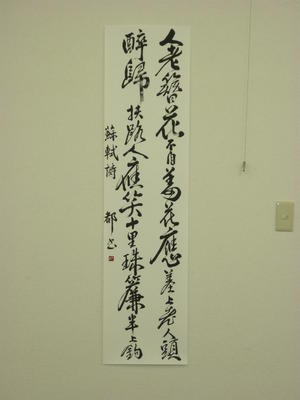 人老簪花不自羞花應羞上老人頭
醉歸扶路人應笑十里珠簾半上鈎
蘇軾詩 都